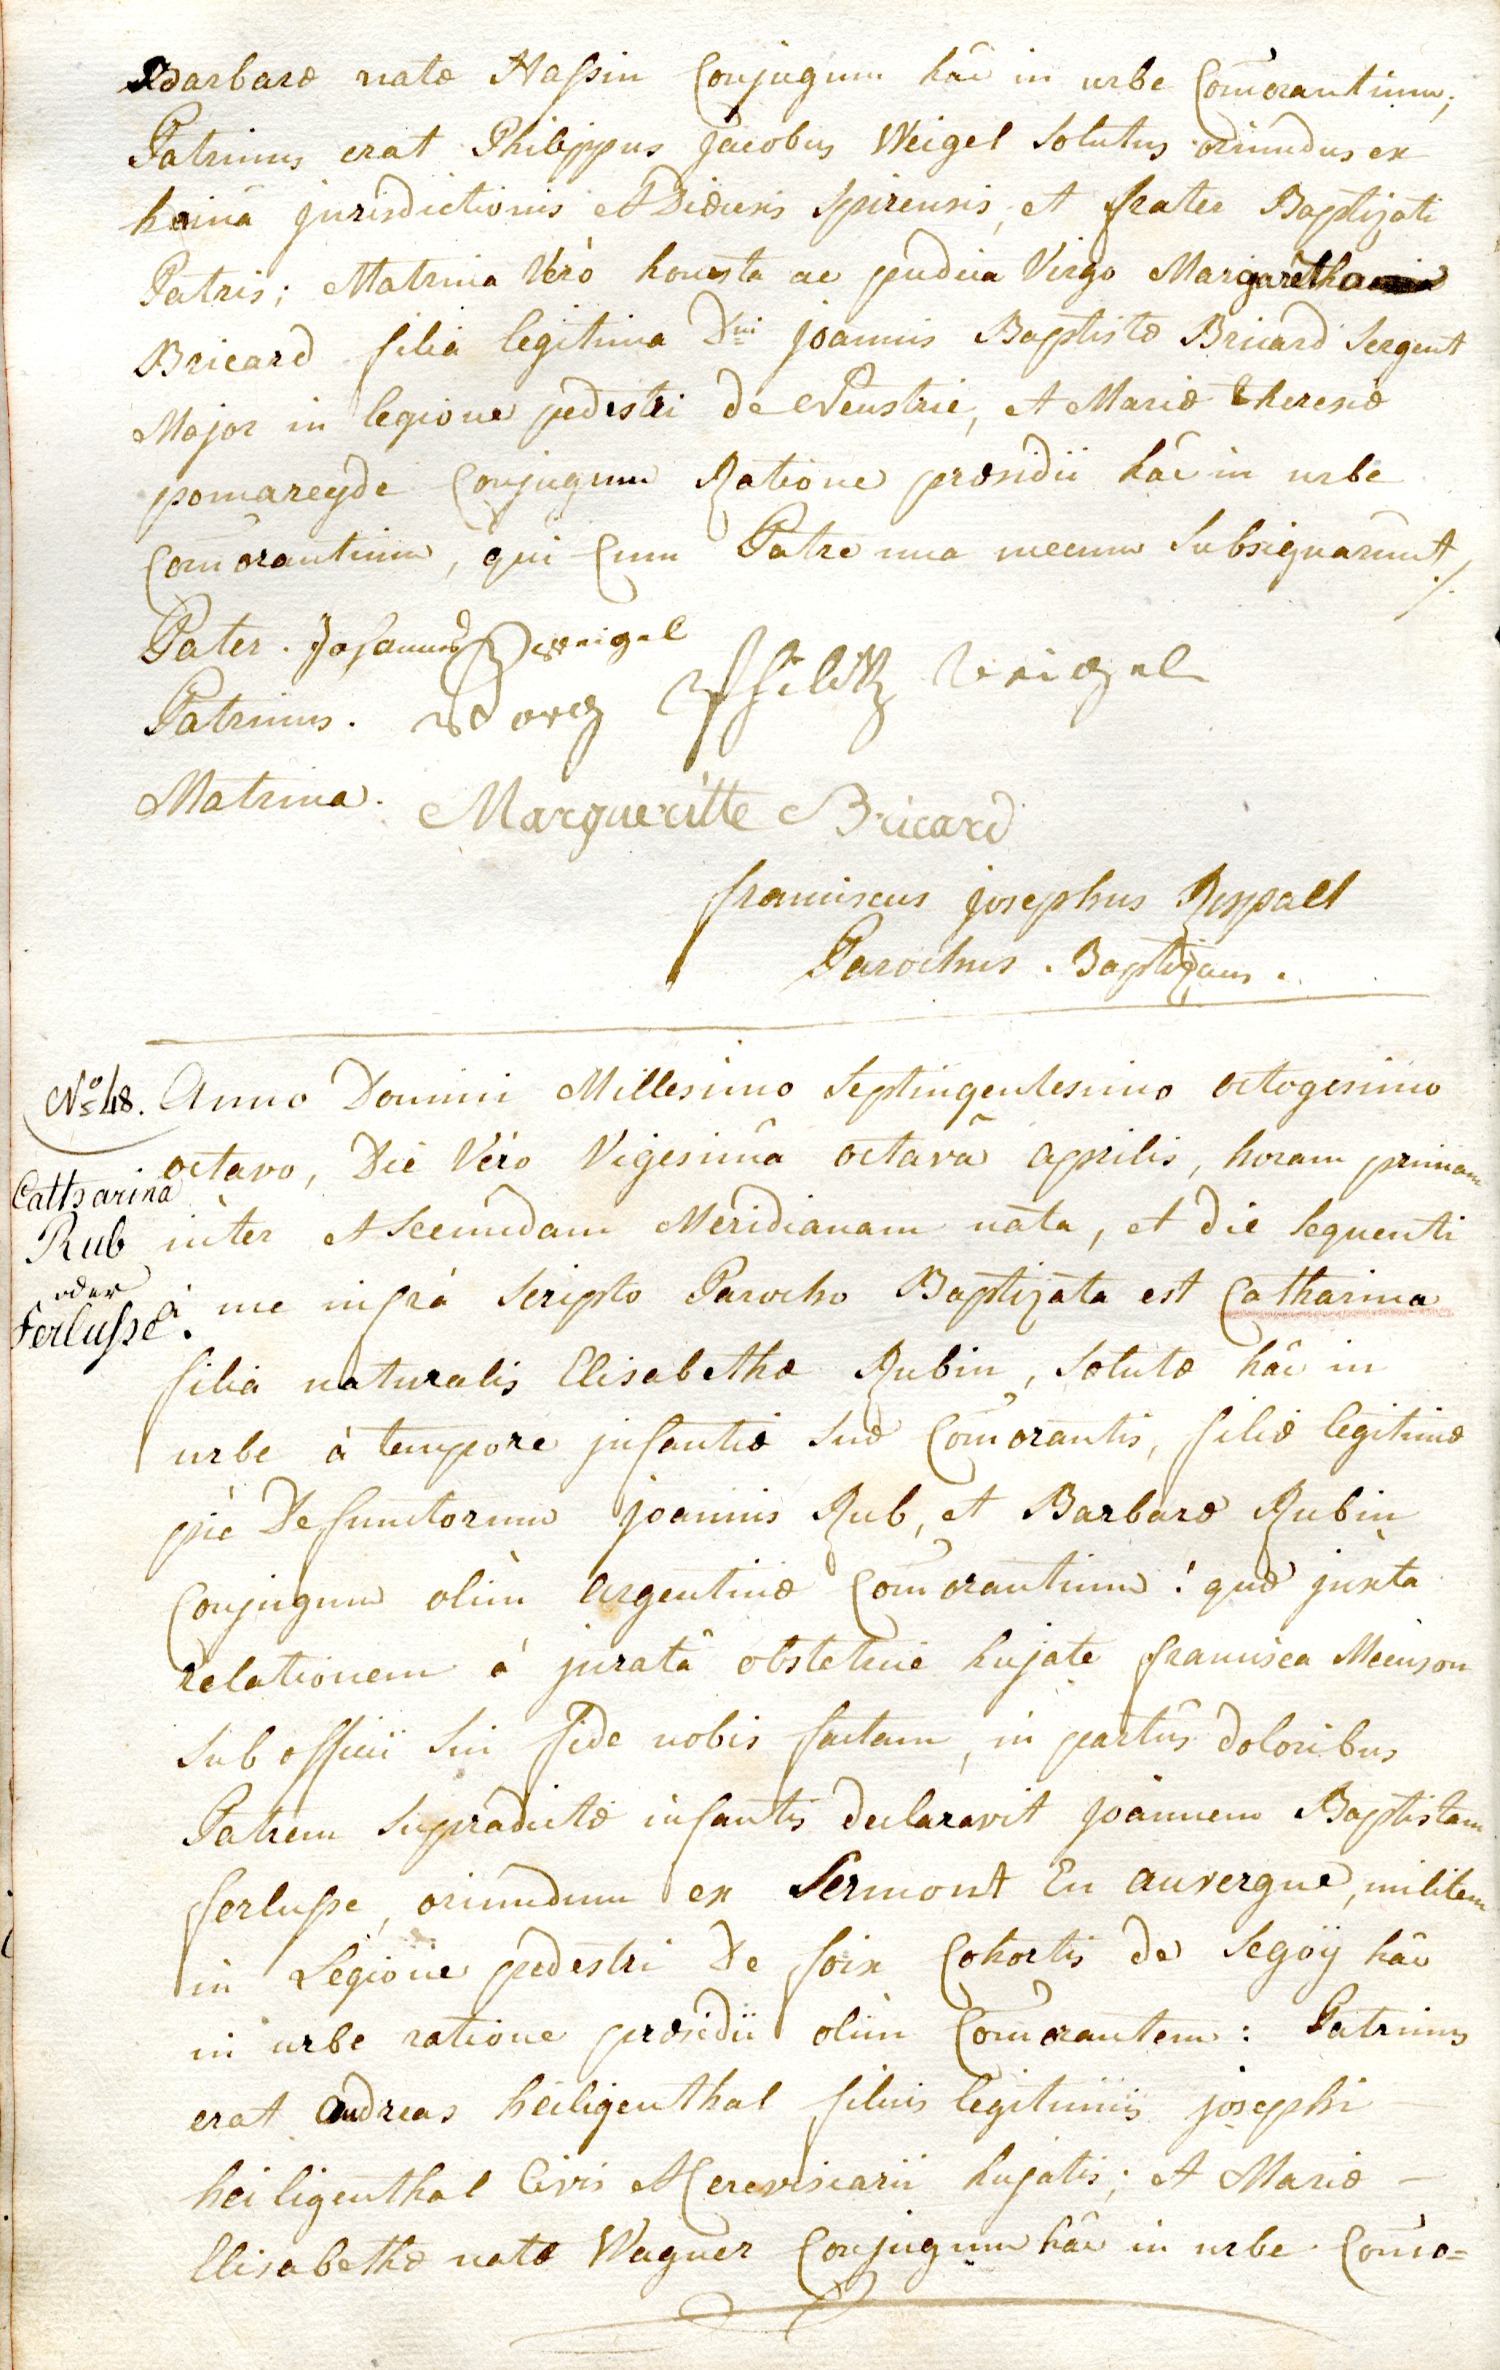 Barbaræ natæ Hassin Conjugum hâc in urbe Com̃orantium;
Patrinus erat Philippus Jacobus Weigel solutus oriundus ex
haina jurisdictionis et Diæcesis Spirensis, et frater Baptizati
Patris; Matrina Verò honesta ac pudica Virgo Margaretha
Bricard filia legitima Dni Joannis Baptistæ Bricard Sergent
Major in legione pedestri de Neustrie, et Mariæ Theresiæ
pomareyde Conjugum Ratione præsidii hâc in urbe
Com̃orantium, qui Cum Patre una mecum Subsignarunt ./.
Pater. Johannes Weigel
Patrinus. Weigel
Matrina. Margueritte Bricard
franciscus josephus Resspall
Parochus Baptizans.
No 48. Anno Domini Millesimo Septingentesimo octogesimo
octavo, Die Vero Vigesimâ octavâ aprilis, horam primam
Catharina
Rub inter et secundam Meridianam nata, et die sequenti
oder
Ferlusse. à me infrà scripto Parocho Baptizata est Catharina
filia naturalis Elisabethæ Rubin, solutæ hâc in
urbe à tempore infantiæ suæ Com̃orantis, filiæ legitimæ
piè Defunctorum joannis Rub, et Barbaræ Rubin
Conjugum olim argentinæ Com̃orantium: quæ juxta
relationem à juratâ obstetrice hujate francisca Mecuson
sub officii sui fide nobis factam, in partûs doloribus
Patrem supradictæ infantis declaravit joannem Baptistam
ferlusse, oriundum ex Lermont En auvergne, militem
in Legione pedestri De foix Cohortis de Segoÿ hâc
in urbe ratione præsidii olim Com̃orantem: Patrinus
erat andreas heiligenthal filius legitimus josephi
heiligenthal Civis et Cerevisiarii hujatis; et Mariæ
Elisabethæ natæ Wagner Conjugum hâc in urbe Com̃o=